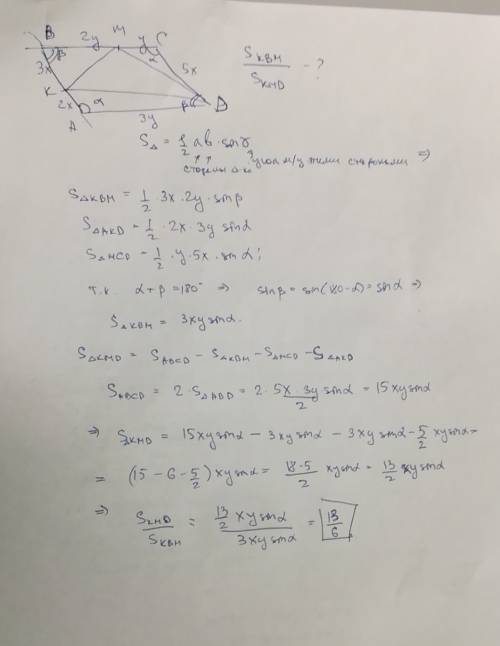 B 2y M y C
β α
3x 5x
K
2x α β D
A 3y
S_KBM / S_KMD - ?
S_Δ = 1/2 ab · sinγ
стороны Δ-ка угол м/у этими сторонами ⇒
S_ΔKBM = 1/2 · 3x · 2y · sinβ
S_ΔAKD = 1/2 · 2x · 3y sinα
S_ΔMCD = 1/2 · y · 5x · sinα;
т.к. α + β = 180° ⇒ sinβ = sin(180-α) = sinα ⇒
S_ΔKBM = 3xy sinα.
S_ΔKMD = S_ABCD - S_ΔKBM - S_ΔMCD - S_ΔAKD
S_ABCD = 2 · S_ΔABD = 2 · 5x · 3y sinα / 2 = 15xy sinα
⇒ S_ΔKMD = 15xy sinα - 3xy sinα - 3xy sinα - 5/2 xy sinα =
= (15 - 6 - 5/2) xy sinα = 18-5 / 2 xy sinα = 13/2 xy sinα
⇒ S_KMD / S_KBM = 13/2 xy sinα / 3xy sinα = 13/6